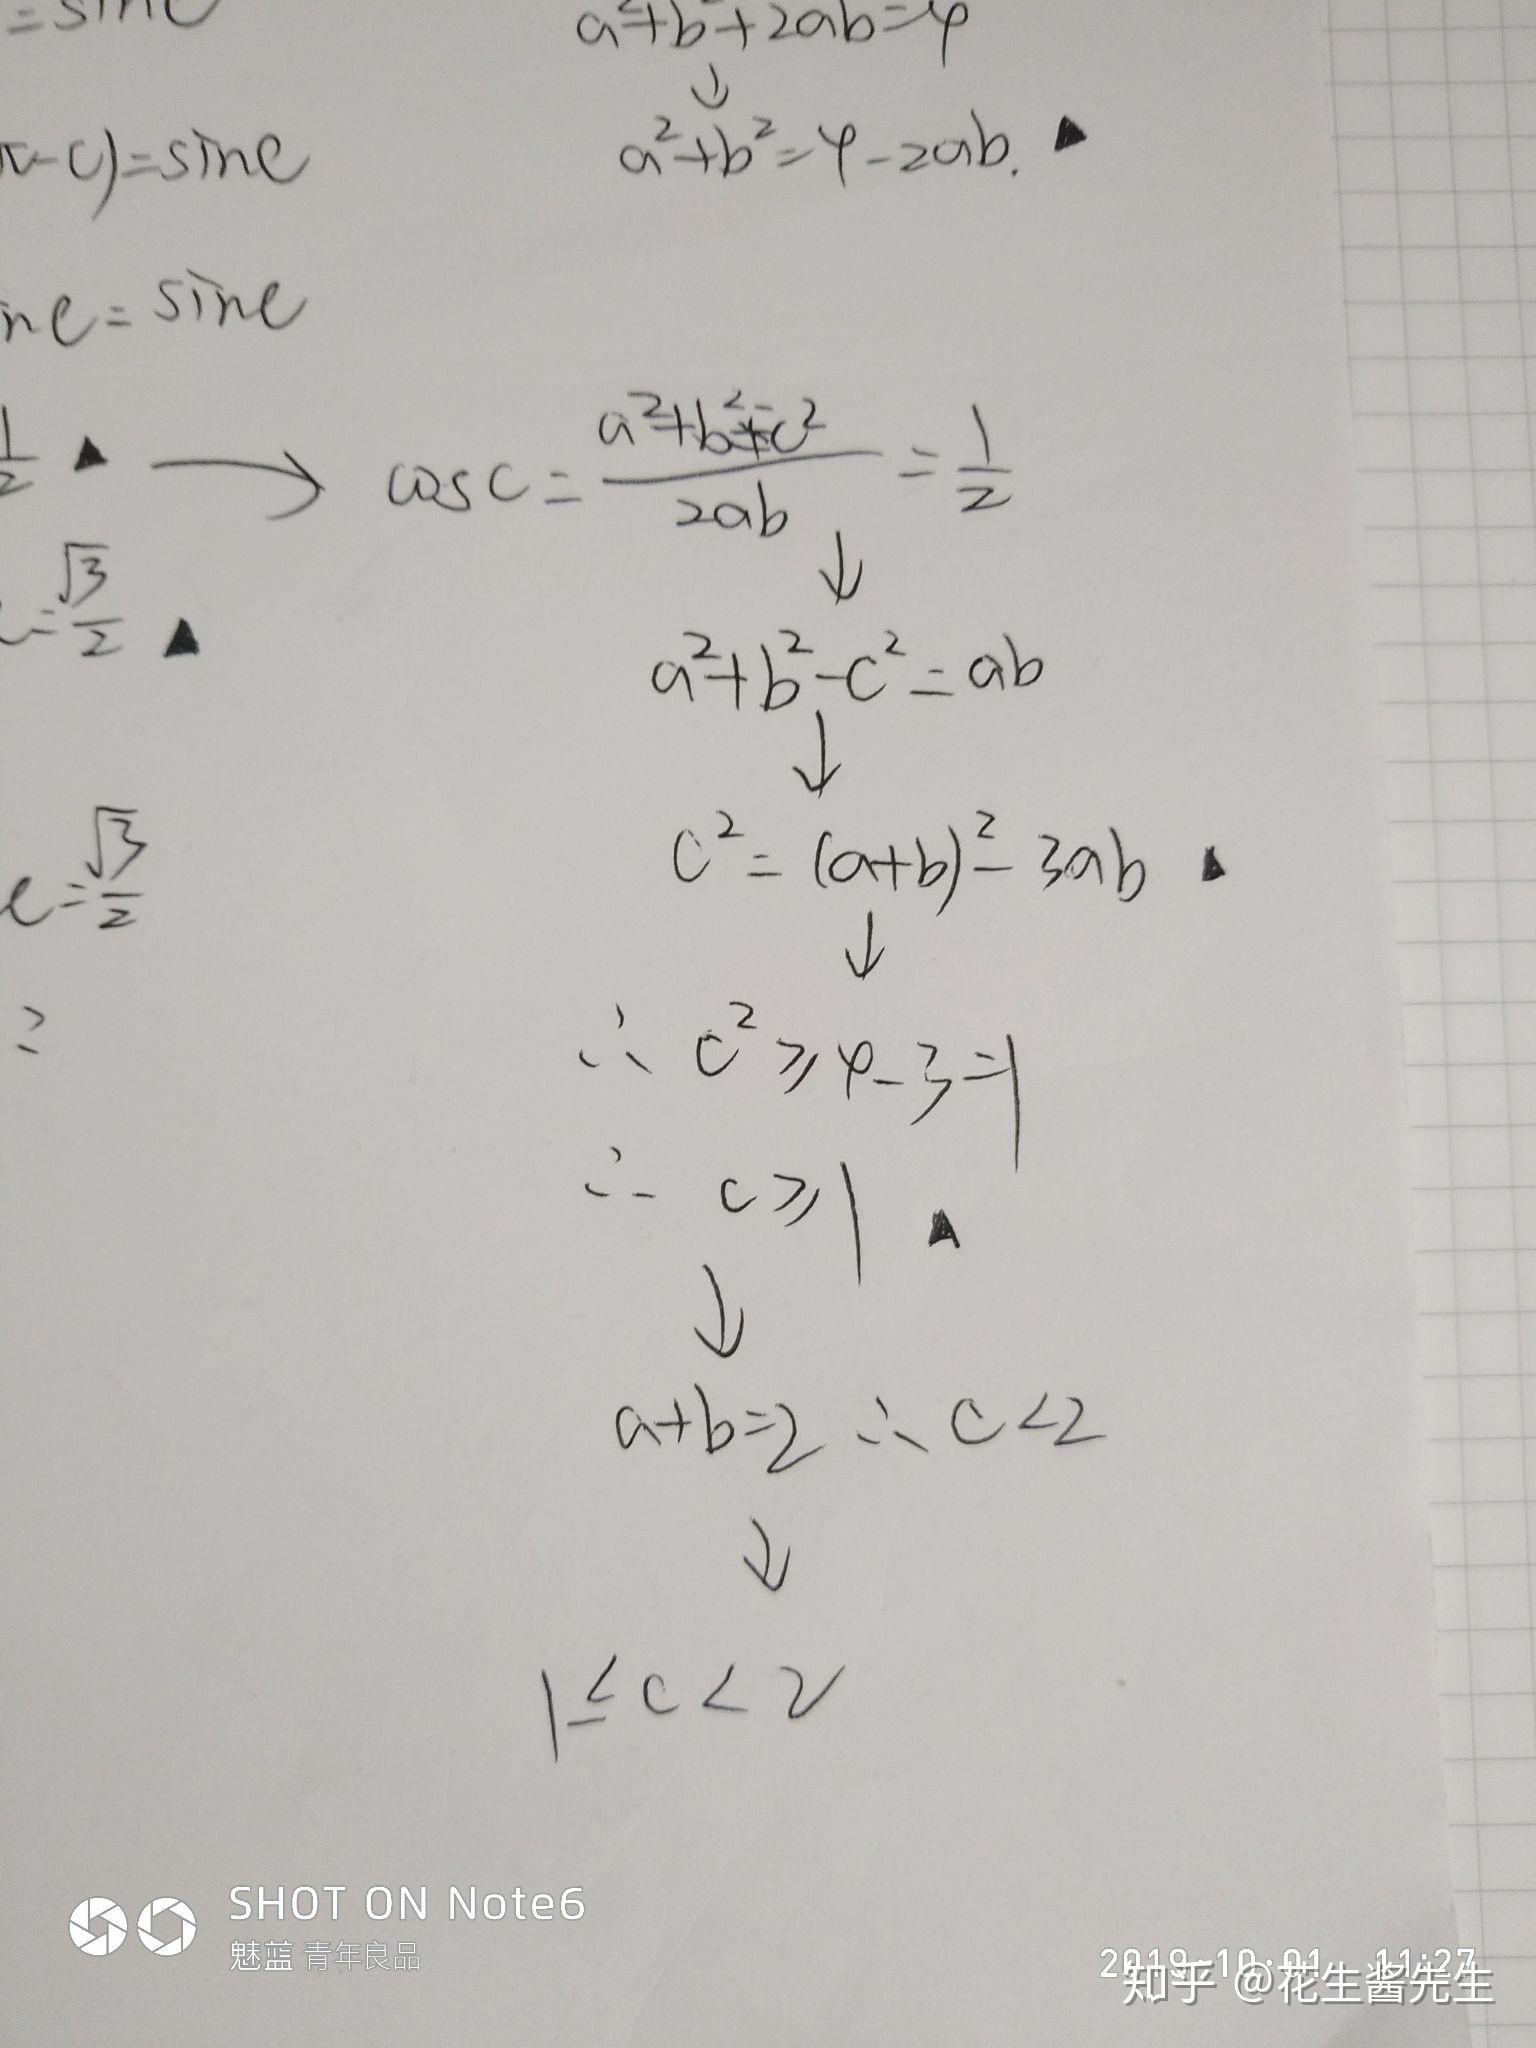 =sinC
a²+b²+2ab=4
↓
π-C)=sinC
a²+b²=4-2ab. ▲
nC=sinC
1/2 ▲ → cosC=(a²+b²-c²)/2ab=1/2
↓
=√3/2 ▲
a²+b²-c²=ab
↓
C=√3/2
c²=(a+b)²-3ab ▲
↓
∴ c²≥4-3=1
∴ c≥1 ▲
↓
a+b=2 ∴ c<2
↓
1≤c<2
SHOT ON Note6
魅蓝 青年良品
2019-10-01 11:27
知乎 @花生酱先生